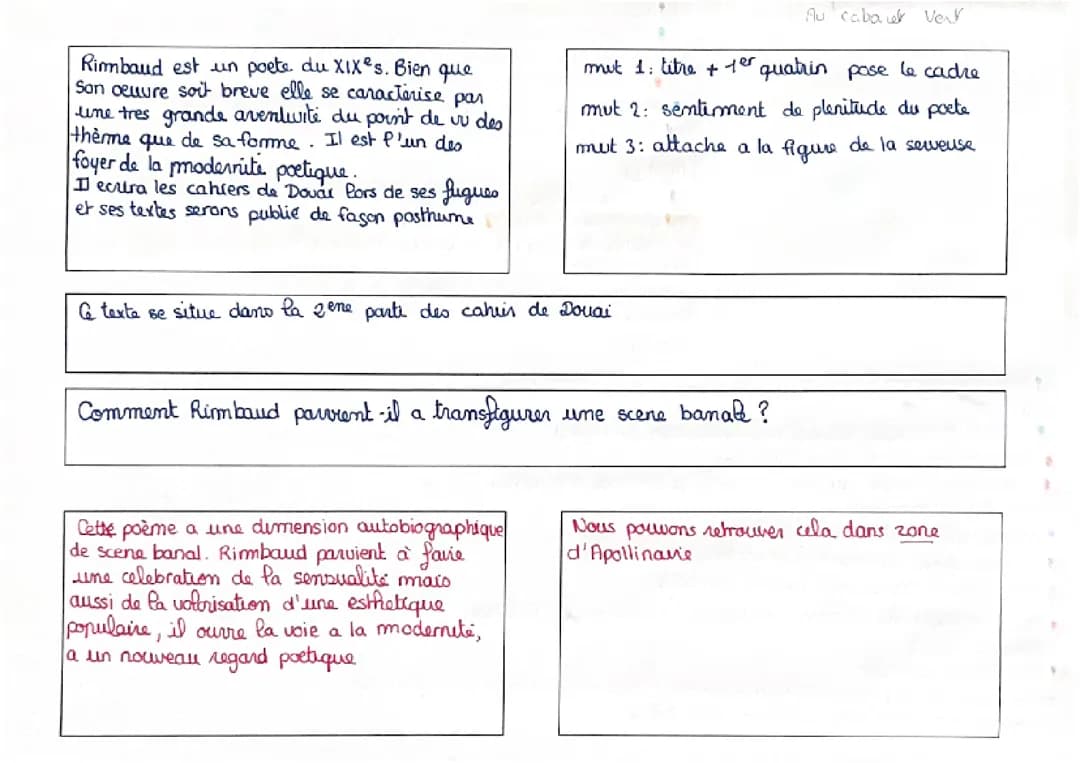 Au cabaret Vert
Rimbaud est un poete du XIXes. Bien que
son oeuvre soit breve elle se caractérise par
une tres grande inventivité du point de vu des
thème que de sa forme. Il est l'un des
foyer de la modernité poetique.
Il ecrira les cahiers de Douai lors de ses fugues
et ses textes serons publié de façon posthume
mvt 1: titre + 1er quatrin pose le cadre
mvt 2: sentiment de plenitude du poete
mvt 3: attache a la figure de la serveuse
Ce texte se situe dans la 2ene partie des cahier de Douai
Comment Rimbaud parvient-il a transfigurer une scene banale ?
Cette poème a une dimension autobiographique
de scene banal. Rimbaud parvient à faire
une celebration de la sensualité mais
aussi de la valorisation d'une esthetique
populaire, il ouvre la voie a la modernité,
a un nouveau regard poetique
Nous pouvons retrouver cela dans zone
d'Apollinaire